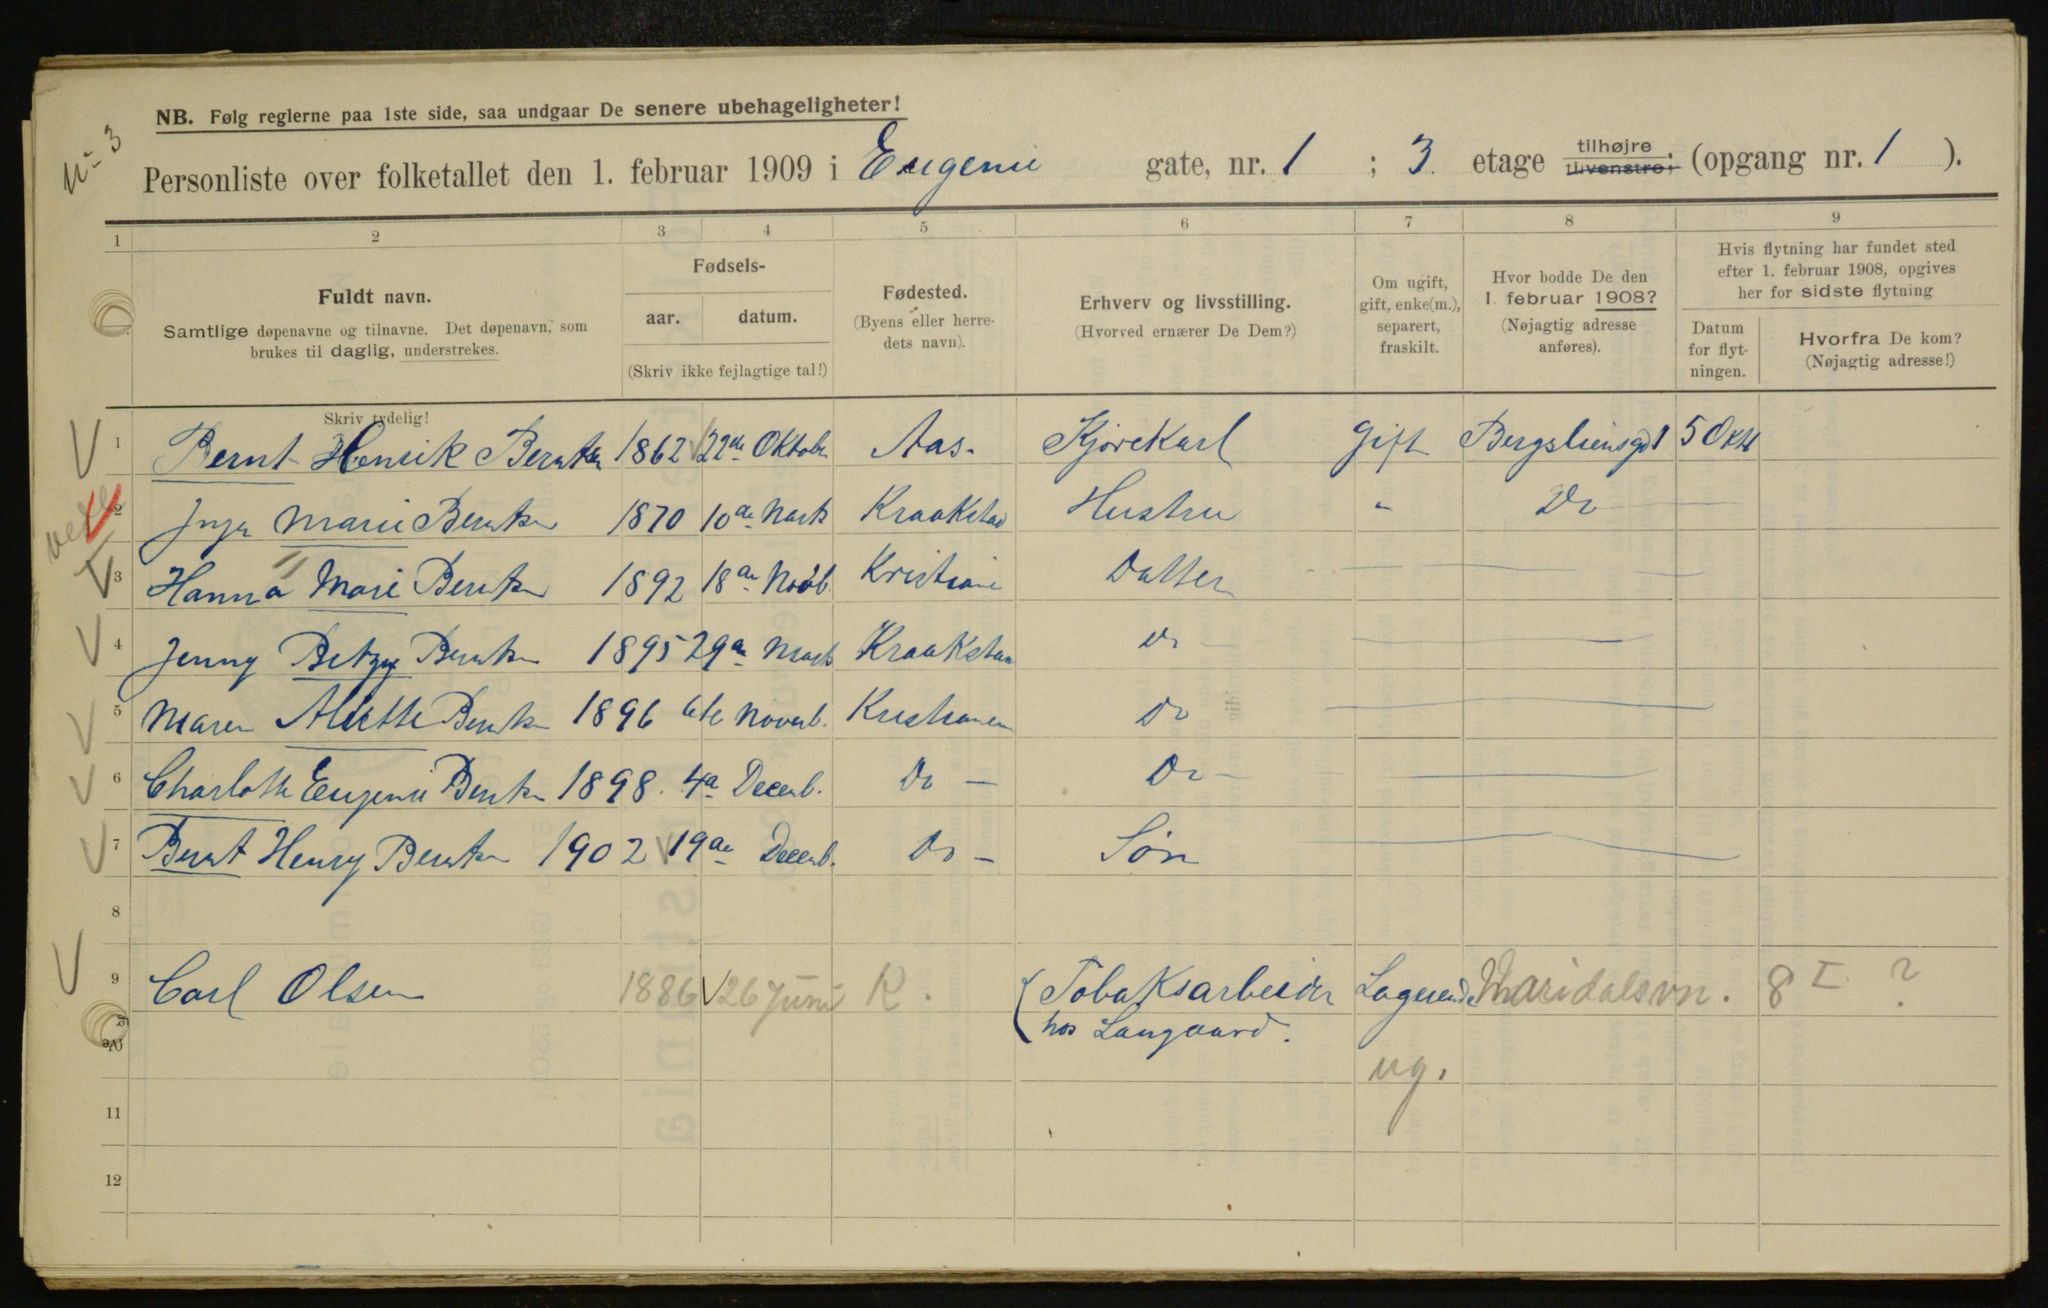 No 3
NB. Følg reglerne paa 1ste side, saa undgaar De senere ubehageligheter!
Personliste over folketallet den 1. februar 1909 i Eugenie gate, nr. 1 ; 3. etage tilhøjre tilvenstre; (opgang nr. 1 ).
1 2 3 4 5 6 7 8 9
Fuldt navn.
Samtlige døpenavne og tilnavne. Det døpenavn, som
brukes til daglig, understrekes.
Skriv tydelig!
Fødsels-
aar. datum.
(Skriv ikke fejlagtige tal!)
Fødested.
(Byens eller herre-
dets navn).
Erhverv og livsstilling.
(Hvorved ernærer De Dem?)
Om ugift,
gift, enke(m.),
separert,
fraskilt.
Hvor bodde De den
1. februar 1908?
(Nøjagtig adresse
anføres).
Hvis flytning har fundet sted
efter 1. februar 1908, opgives
her for sidste flytning
Datum
for flyt-
ningen.
Hvorfra De kom?
(Nøjagtig adresse!)
1 Bernt Henrik Berntsen 1862 22de Oktober Aas. Kjørekarl Gift Bergsliensgd 1 5 Okt
2 Inga Marie Berntsen 1870 10de Marts Kraakstad Hustru " Do
3 Hanna Marie Berntsen 1892 18de Novb. Kristiania Datter
4 Jenny Betzy Berntsen 1895 29de Marts Kraakstad Do
5 Maren Alette Berntsen 1896 6te Novemb. Kristiania Do
6 Charlotte Eugenie Berntsen 1898. 4de Decemb. Do - Do -
7 Bernt Henry Berntsen 1902 19de Decemb. Do - Søn
8
9 Carl Olsen 1886 26 Juni K. Tobaksarbeider Logerende Maridalsvn. 8 I ?
10 hos Langaard. ug.
11
12